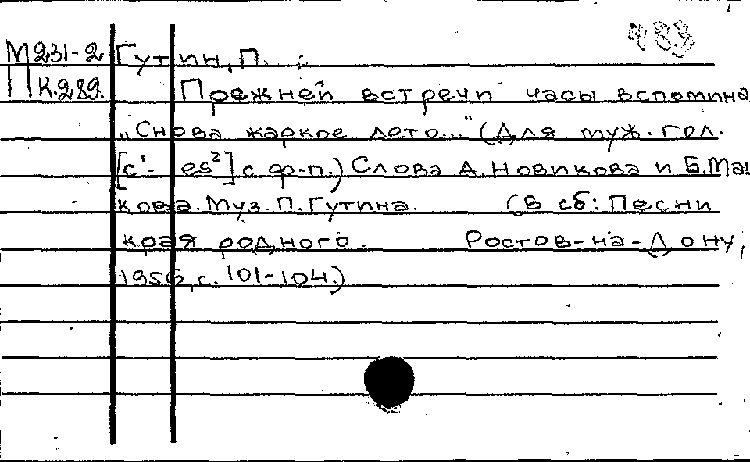 483
М231-2 Гутин, П.
П к.289. Прежней встречи часы вспомина
„Снова жаркое лето..." (Для муж. гол.
[c¹- es²] с ф-п.) Слова А. Новикова и Б. Маш
кова. Муз. П. Гутина. (В сб: Песни
края родного. Ростов-на-Дону,
1956, с. 101-104.)